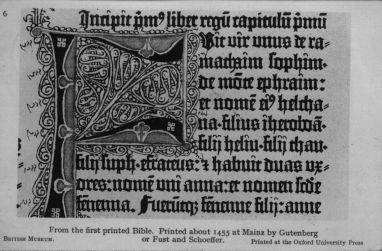 6
Incipit pm⁹ liber regū capitulū pmū
FUit vir unus de ra-
mathaim sophim·
de mōte ephraim:
et nomē ei⁹ helcha-
na·filius iheroboā·
filij heliu·filij thau·
filij suph·efrateus: ⁊ habuit duas vx-
ores: nomē vni anna: et nomen scde
fenenna. Fuerūtq; fenenne filij: anne
From the first printed Bible. Printed about 1455 at Mainz by Gutenberg
or Fust and Schoeffer.
BRITISH MUSEUM.
Printed at the Oxford University Press